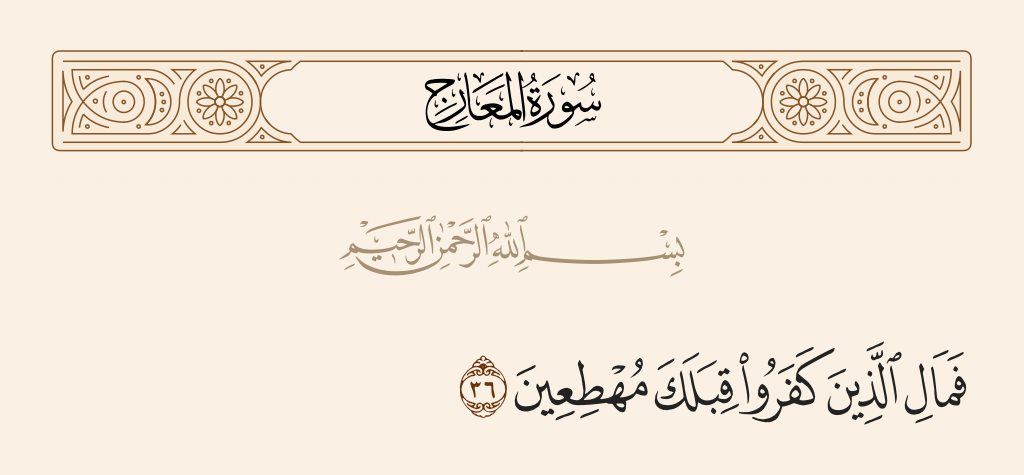 سُورَةُ المَعَارِجِ
بِسْمِ ٱللَّهِ ٱلرَّحْمَٰنِ ٱلرَّحِيمِ
فَمَالِ ٱلَّذِينَ كَفَرُوا۟ قِبَلَكَ مُهْطِعِينَ ٣٦